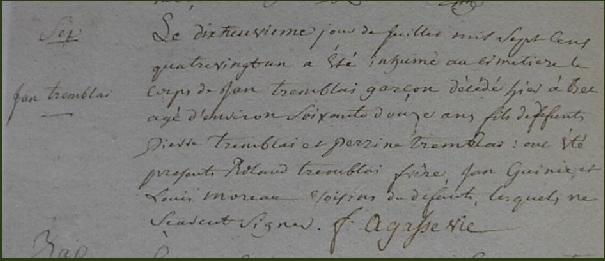 Sep
Jan tremblai
Le dixneuvieme jour de juillet mil Sept Cens
quatrevingt un a Été inhumé au cimetiere le
Corps de Jan tremblai garçon décédé hier à
agé d'environ Soixante douze ans fils defeunts
pierre tremblai et perrine tremblai : ont été
presents Roland tremblai frère, Jan Guinié, et
Louis moreau Voisins du defunt, lesquels ne
Scavent Signer. f. Agasse vic
Bap